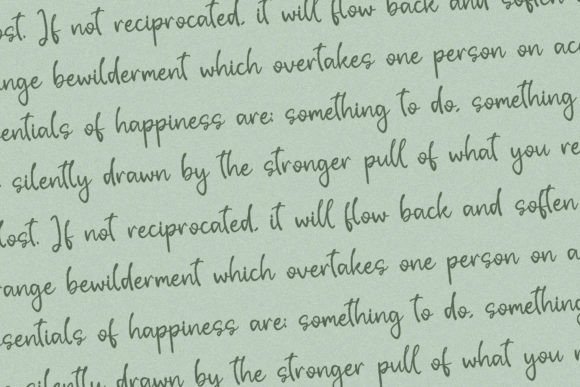 ost. If not reciprocated, it will flow back and soften
ange bewilderment which overtakes one person on ac
entials of happiness are: something to do, something
silently drawn by the stronger pull of what you re
lost. If not reciprocated, it will flow back and soften
range bewilderment which overtakes one person on a
sentials of happiness are: something to do, something
silently drawn by the stronger pull of what you r